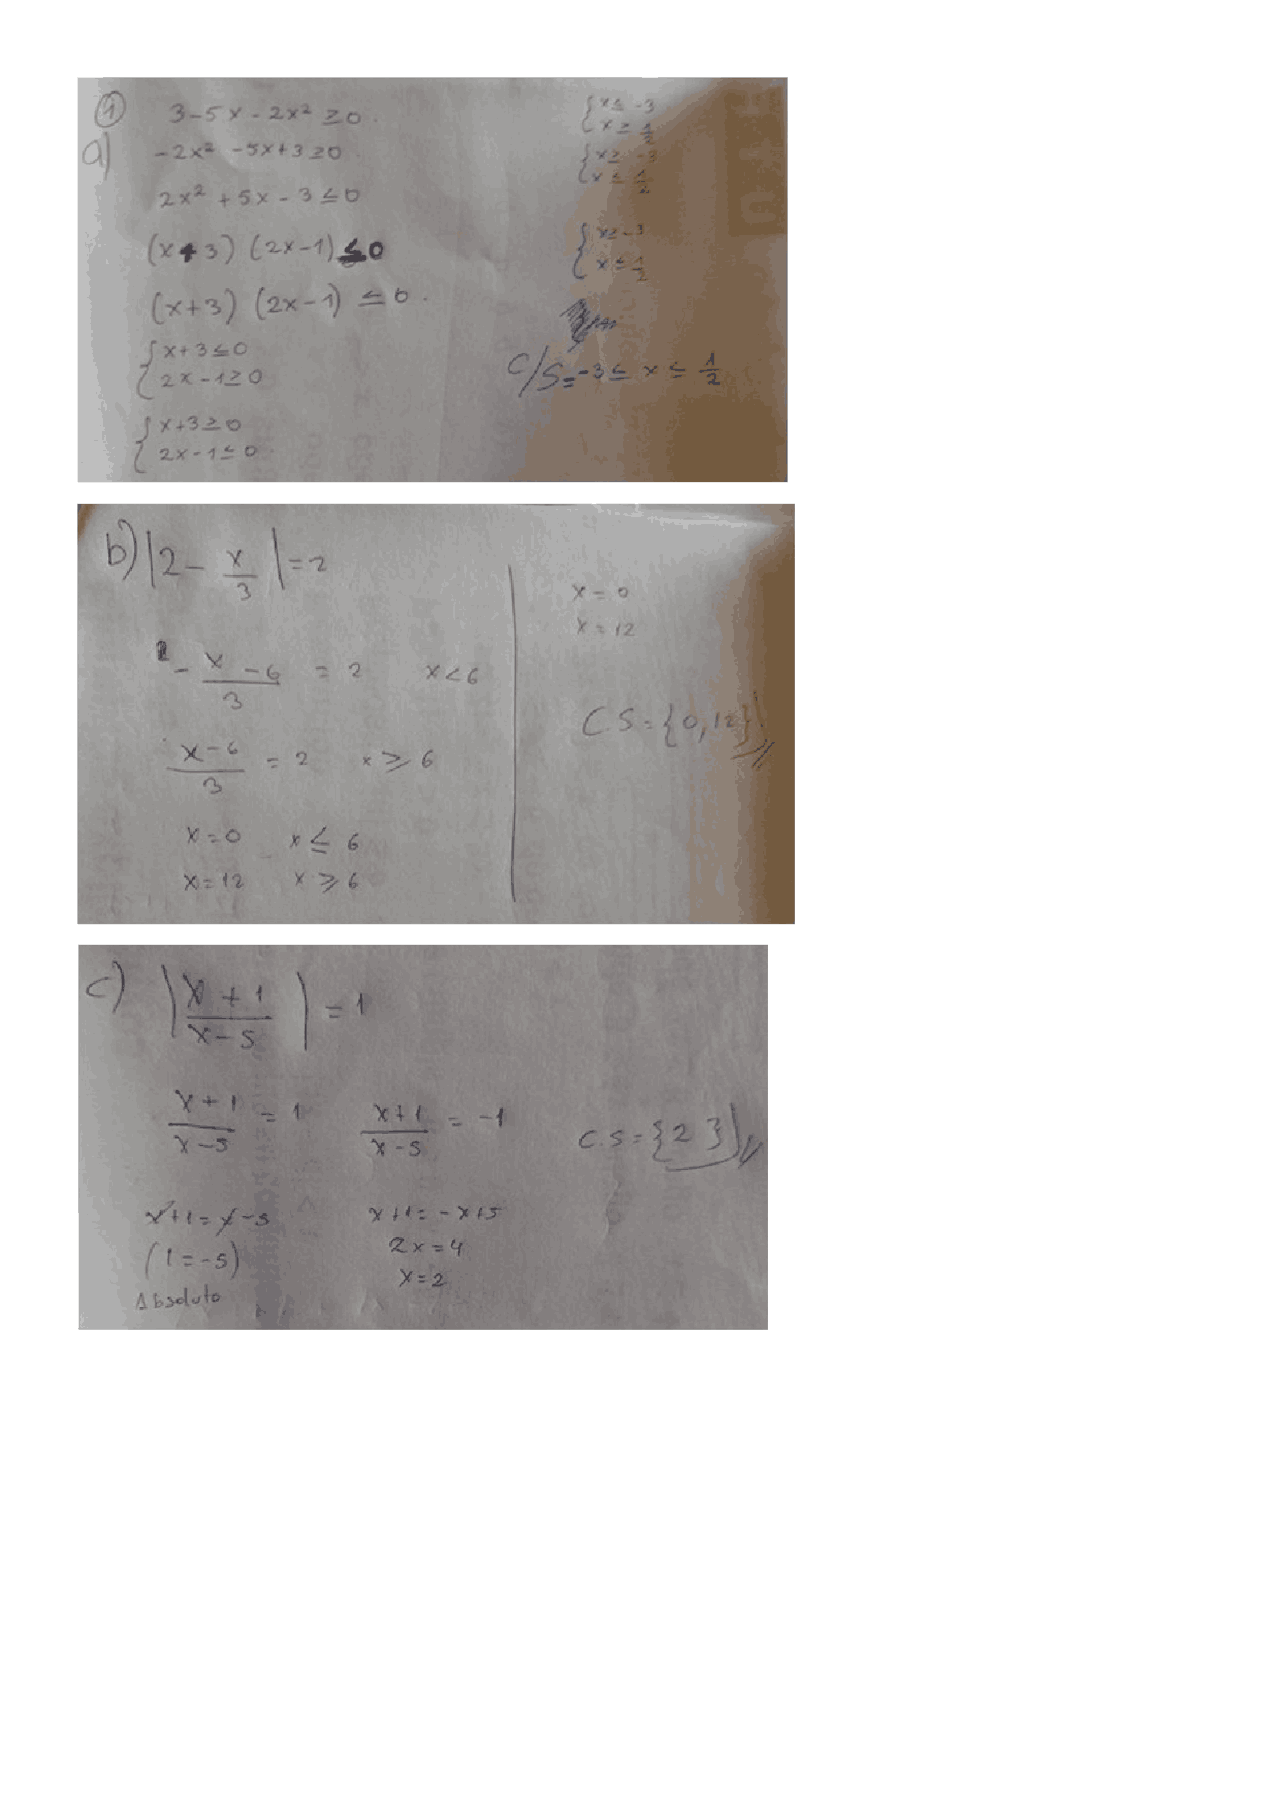 ① 3-5x-2x² ≥0.
a) -2x² -5x+3≥0
2x² +5x-3≤0
(x+3) (2x-1)≤0
(x+3) (2x-1) ≤0.
{x+3≤0
2x-1≥0
{x+3≥0
2x-1≤0
{x≤-3
x≥1/2
{x≥-3
x≤1/2
{x≥-3
x≤1/2
C/S=-3≤x≤1/2
b) |2-x/3|=2
-(x-6)/3 = 2 x<6
(x-6)/3 = 2 x≥6
x=0 x≤6
x=12 x≥6
x=0
x=12
C.S={0,12}
c) |(x+1)/(x-5)|=1
(x+1)/(x-5)=1 (x+1)/(x-5)=-1
x+1=x-5 x+1=-x+5
(1=-5) 2x=4
Absoluto x=2
C.S={2}